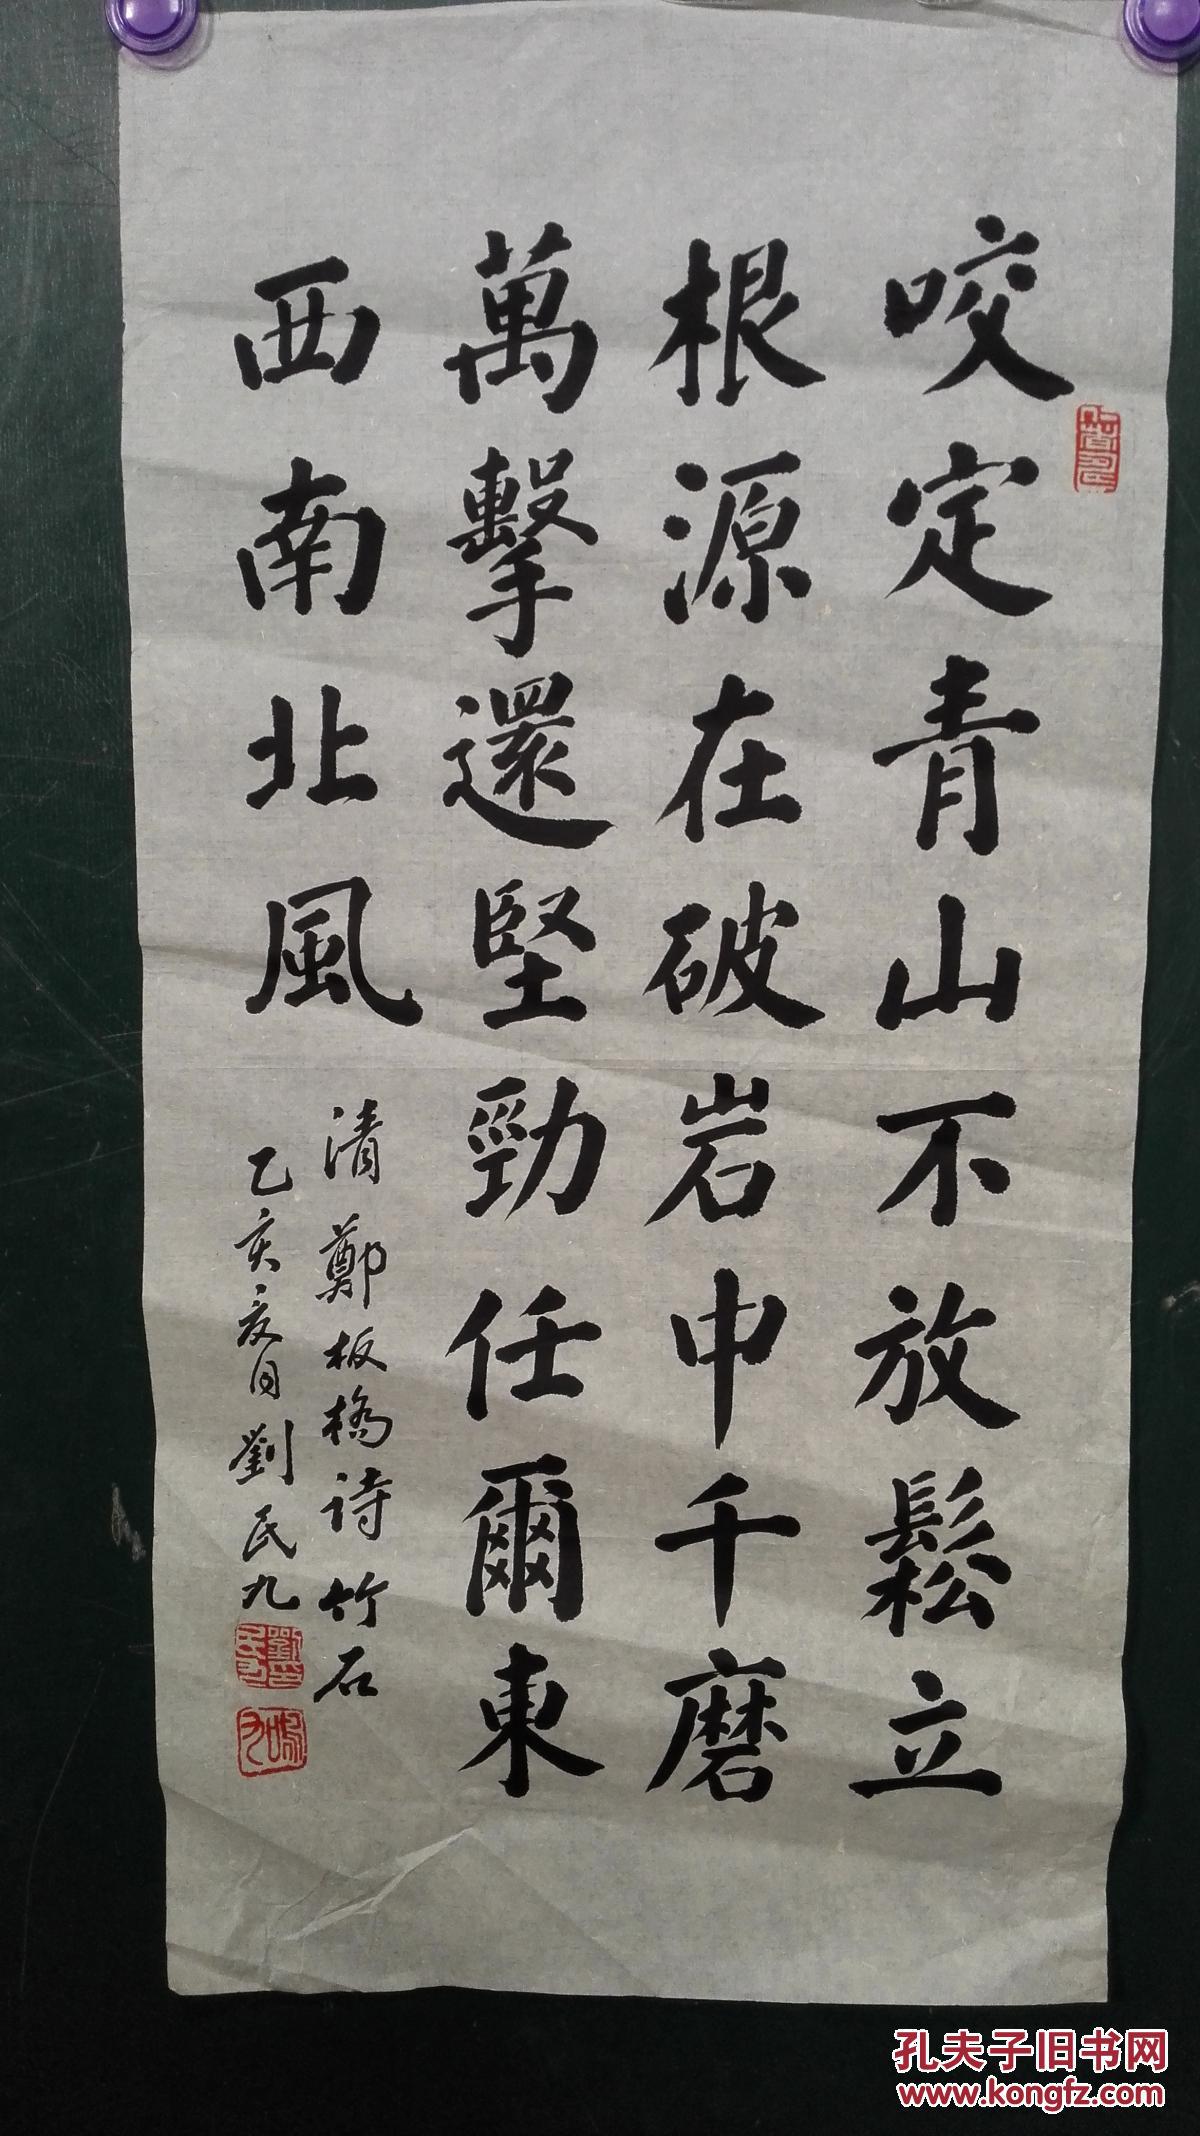 咬定青山不放鬆立
根源在破岩中千磨
萬擊還堅勁任爾東
西南北風
清鄭板橋诗竹石
乙亥夏月劉民九
孔夫子旧书网
www.kongfz.com